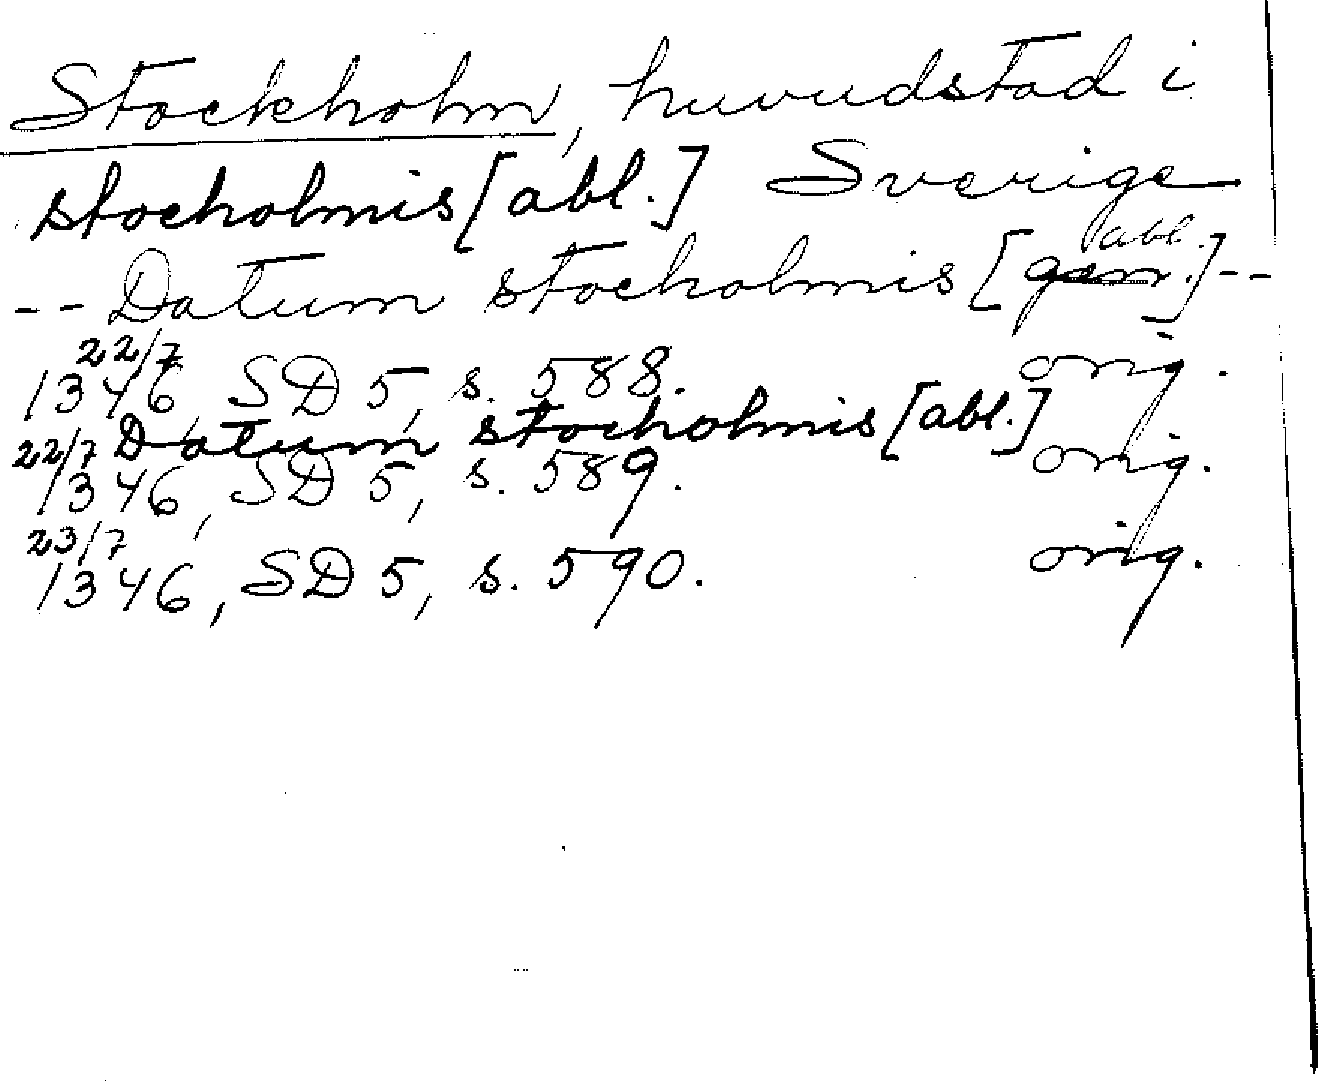 Stockholm, huvudstad i
stocholmis [abl.] Sverige
abl.
-- Datum stocholmis [gen.] --
22/7
1346, SD 5, s. 588. orig.
22/7 Datum stocholmis [abl.]
1346, SD 5, s. 589. orig.
23/7
1346, SD 5, s. 590. orig.